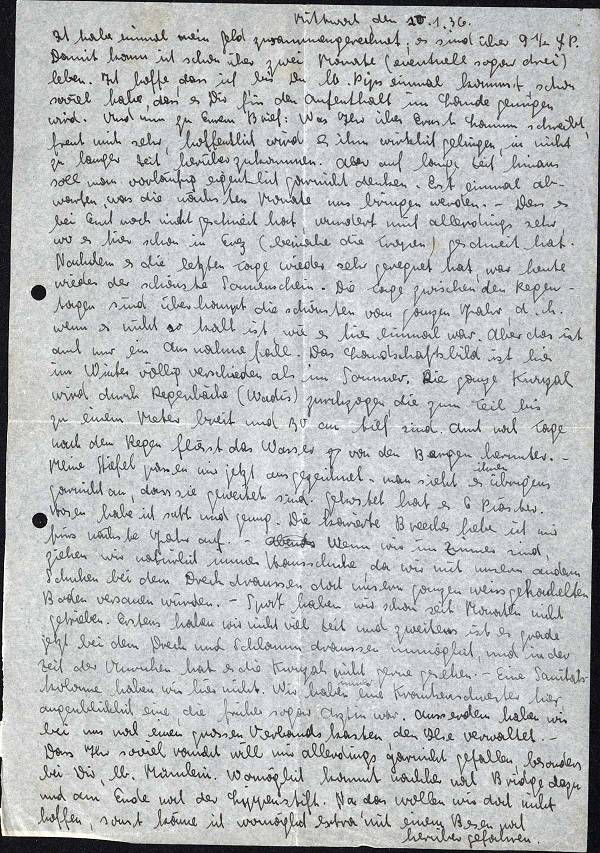 Mittwoch den 10.1.36.
Ich habe einmal mein Geld zusammengerechnet, es sind über 9½ £P.
Damit kann ich schon über zwei Monate (eventuell sogar drei)
leben. Ich hoffe, dass ich bis du lb. Pips einmal kommst, schon
soviel habe, dass es Dir für den Aufenthalt im Lande genügen
wird. Und nun zu Eurem Brief: Was Ihr über Ernst Hamm schreibt,
freut mich sehr, hoffentlich wird es ihm wirklich gelingen, in nicht
zu langer Zeit herüberzukommen. Aber auf lange Zeit hinaus
soll man vorläufig eigentlich garnicht denken. Erst einmal ab-
warten, was die nächsten Monate uns bringen werden. - Dass es
bei Euch noch nicht geschneit hat, wundert mich allerdings sehr
wo es hier schon in Erez (beinahe die Tropen) geschneit hat.
Nachdem es die letzten Tage wieder sehr geregnet hat, war heute
wieder der schönste Sonnenschein. Die Tage zwischen den Regen-
tagen sind überhaupt die schönsten vom ganzen Jahr d.h.
wenn es nicht so kalt ist wie es hier einmal war. Aber das ist
auch nur ein Ausnahmefall. Das Landschaftsbild ist hier
im Winter völlig verschieden als im Sommer. Die ganze Kwuzah
wird durch Regenbäche (Wadis) durchzogen, die zum Teil bis
zu einem Meter breit und 30 cm tief sind. Auch noch Tage
nach dem Regen fliesst das Wasser von den Bergen herunter. -
Meine Stiefel passen mir jetzt ausgezeichnet. man sieht es ihnen übrigens
garnicht an, dass sie geweitet sind. Gekostet hat es 6 Piaster.
Hosen habe ich satt und genug. Die karierte Breeches hebe ich mir
fürs nächste Jahr auf. - Wenn wir im Zimmer sind,
ziehen wir natürlich immer Hausschuhe da wir mit unsern andern
Schuhen bei dem Dreck draussen dort unsern ganzen weissgekachelten
Boden versauen würden. - Sport haben wir schon seit Monaten nicht
getrieben. Erstens haben wir nicht viel Zeit und zweitens ist es grade
jetzt bei dem Dreck und Schlamm draussen unmöglich, und in der
Zeit der Unruhen hat es die Kwuzah nicht gerne gesehen. - Eine Sanitäts-
kolonne haben wir hier nicht. Wir haben immer eine Krankenschwester hier
augenblicklich eine, die früher sogar Ärztin war. Ausserdem haben wir
bei uns noch einen grossen Verbandskasten den Ilse verwaltet. -
Dass Ihr soviel raucht will mir allerdings garnicht gefallen, besonders
bei Dir, lb. Mümlein. Womöglich kommt nachher noch Bridge dazu
und am Ende noch der Lippenstift. Na das wollen wir doch nicht
hoffen, sonst käme ich womöglich extra mit einem Besen noch
herüber gefahren.